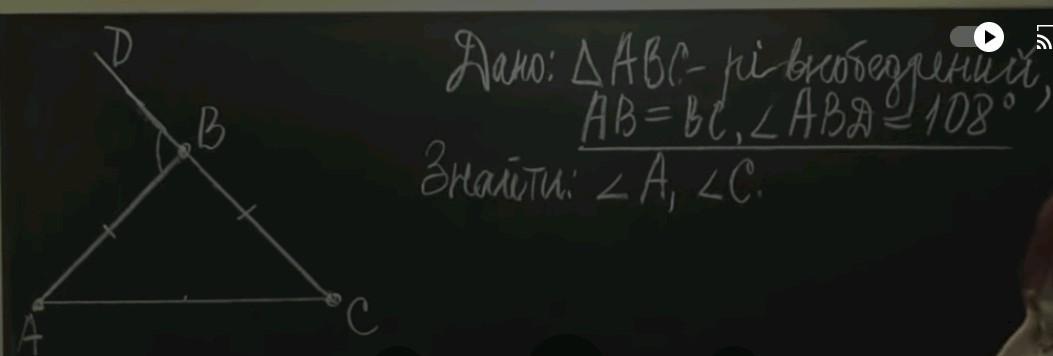 D
B
A
C
Дано: △ABC - рівнобедрений,
AB = BC, ∠ABD = 108°
Знайти: ∠A, ∠C.